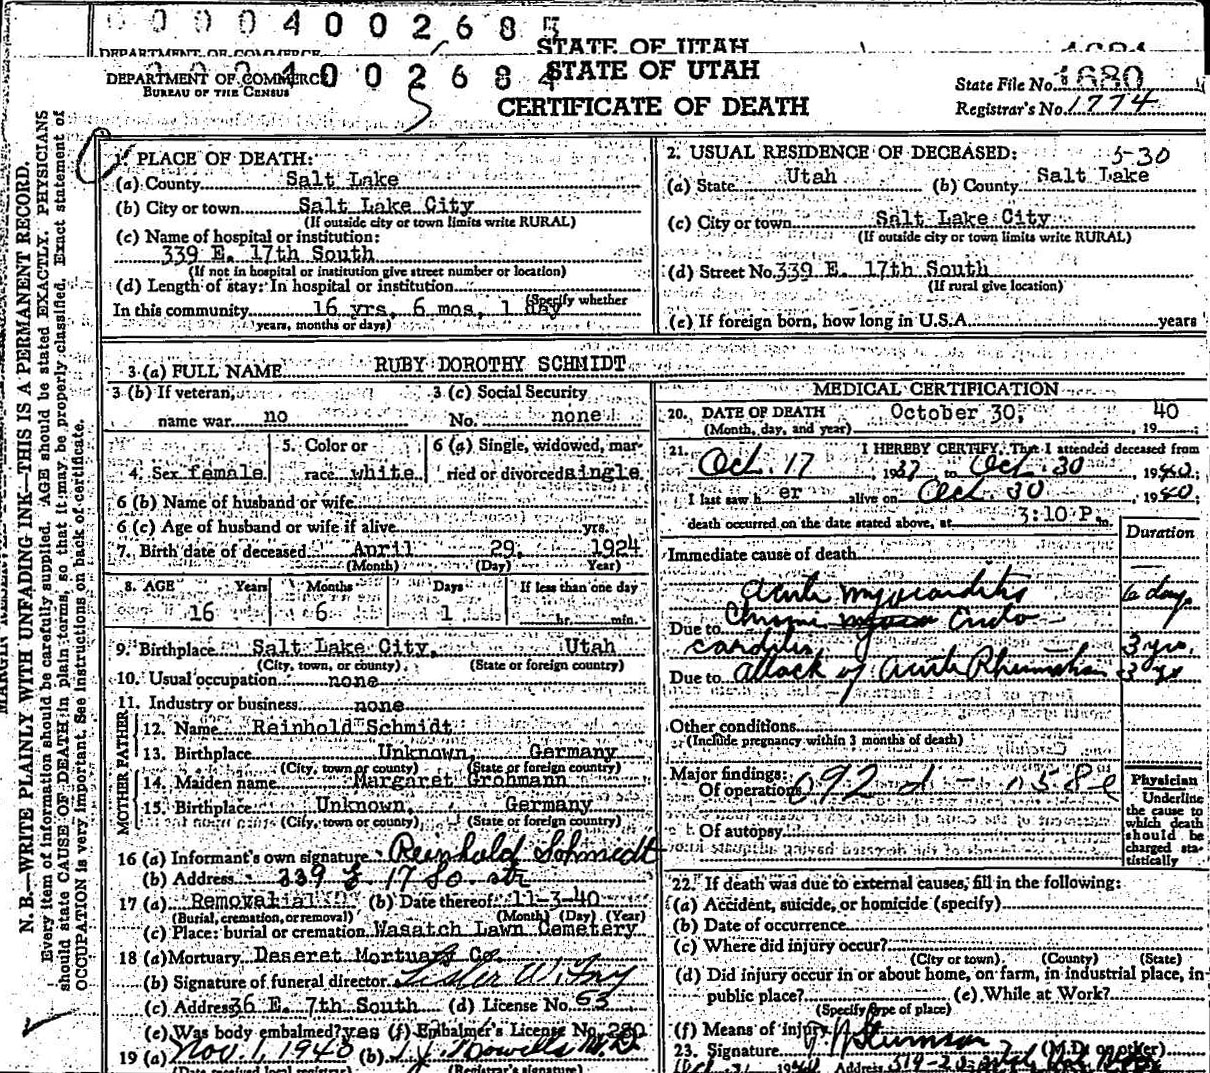 0 0 0 4 0 0 2 6 8 5
STATE OF UTAH
DEPARTMENT OF COMMERCE
BUREAU OF THE CENSUS
4 0 0 2 6 8 4
STATE OF UTAH
CERTIFICATE OF DEATH
State File No. 1680
Registrar's No. 1774
1. PLACE OF DEATH:
(a) County Salt Lake
(b) City or town Salt Lake City
(If outside city or town limits write RURAL)
(c) Name of hospital or institution:
339 E. 17th South
(If not in hospital or institution give street number or location)
(d) Length of stay: In hospital or institution
(Specify whether
In this community 16 yrs, 6 mos, 1 day
years, months or days)
2. USUAL RESIDENCE OF DECEASED: 5-30
(a) State Utah (b) County Salt Lake
(c) City or town Salt Lake City
(If outside city or town limits write RURAL)
(d) Street No. 339 E. 17th South
(If rural give location)
(e) If foreign born, how long in U.S.A. years
3 (a) FULL NAME RUBY DOROTHY SCHMIDT
3 (b) If veteran, name war no
3 (c) Social Security No. none
4. Sex female
5. Color or race white
6 (a) Single, widowed, married or divorced single
6 (b) Name of husband or wife
6 (c) Age of husband or wife if alive yrs.
7. Birth date of deceased April 29, 1924
(Month) (Day) Year)
8. AGE Years Months Days If less than one day
16 6 1 hr. min.
9. Birthplace Salt Lake City, Utah
(City, town, or county) (State or foreign country)
10. Usual occupation none
11. Industry or business none
FATHER
12. Name Reinhold Schmidt
13. Birthplace Unknown, Germany
(City, town or county) (State or foreign country)
MOTHER
14. Maiden name Margaret Grohmann
15. Birthplace Unknown, Germany
(City, town or county) (State or foreign country)
16 (a) Informant's own signature Reinhold Schmidt
(b) Address 339 E 17 So. str
17 (a) Removal (b) Date thereof 11-3-40
(Burial, cremation, or removal) (Month) (Day) (Year)
(c) Place: burial or cremation Wasatch Lawn Cemetery
18 (a) Mortuary Deseret Mortuary Co.
(b) Signature of funeral director
(c) Address 36 E. 7th South (d) License No. 63
(e) Was body embalmed? yes (f) Embalmer's License No. 280
19 (a) Nov. 1, 1940 (b) M.D.
(Date received local registrar) (Registrar's signature)
MEDICAL CERTIFICATION
20. DATE OF DEATH October 30, 1940
(Month, day, and year)
21. I HEREBY CERTIFY, That I attended deceased from
Oct. 17, 1937 to Oct. 30 1940;
I last saw her alive on Oct. 30, 1940;
death occurred on the date stated above, at 3:10 P. m.
Duration
Immediate cause of death
Acute myocarditis 6 days
Due to Chronic Endo
carditis 3 yrs.
Due to Attack of Acute Rheumatism 3 yrs
Other conditions
(Include pregnancy within 3 months of death)
Major findings:
Of operation 092
Of autopsy
Physician
Underline the cause to which death should be charged statistically
22. If death was due to external causes, fill in the following:
(a) Accident, suicide, or homicide (specify)
(b) Date of occurrence
(c) Where did injury occur?
(City or town) (County) (State)
(d) Did injury occur in or about home, on farm, in industrial place, in public place? (e) While at Work?
(Specify type of place)
(f) Means of injury
23. Signature (M.D. or other)
Address
N. B.—WRITE PLAINLY WITH UNFADING INK—THIS IS A PERMANENT RECORD.
Every item of information should be carefully supplied. AGE should be stated EXACTLY. PHYSICIANS
should state CAUSE OF DEATH in plain terms, so that it may be properly classified. Exact statement of
OCCUPATION is very important. See instructions on back of certificate.